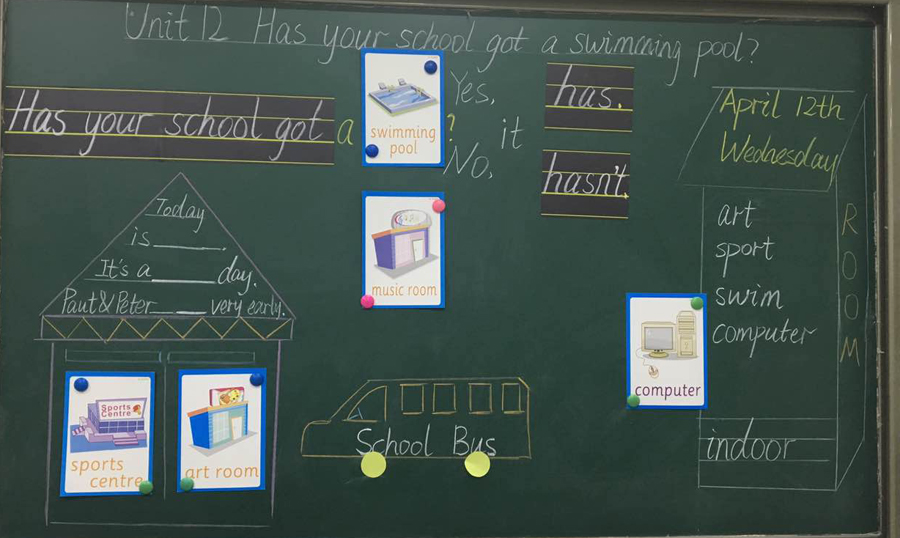 Unit 12 Has your school got a swimming pool?
Has your school got a
swimming
pool
?
Yes,
No,
it
has.
hasn't.
music room
April 12th
Wednesday
Today
is______.
It's a_____ day.
Paut&Peter_____very early.
Sports
Centre
sports
centre
art room
School Bus
computer
art
sport
swim
computer
ROOM
indoor